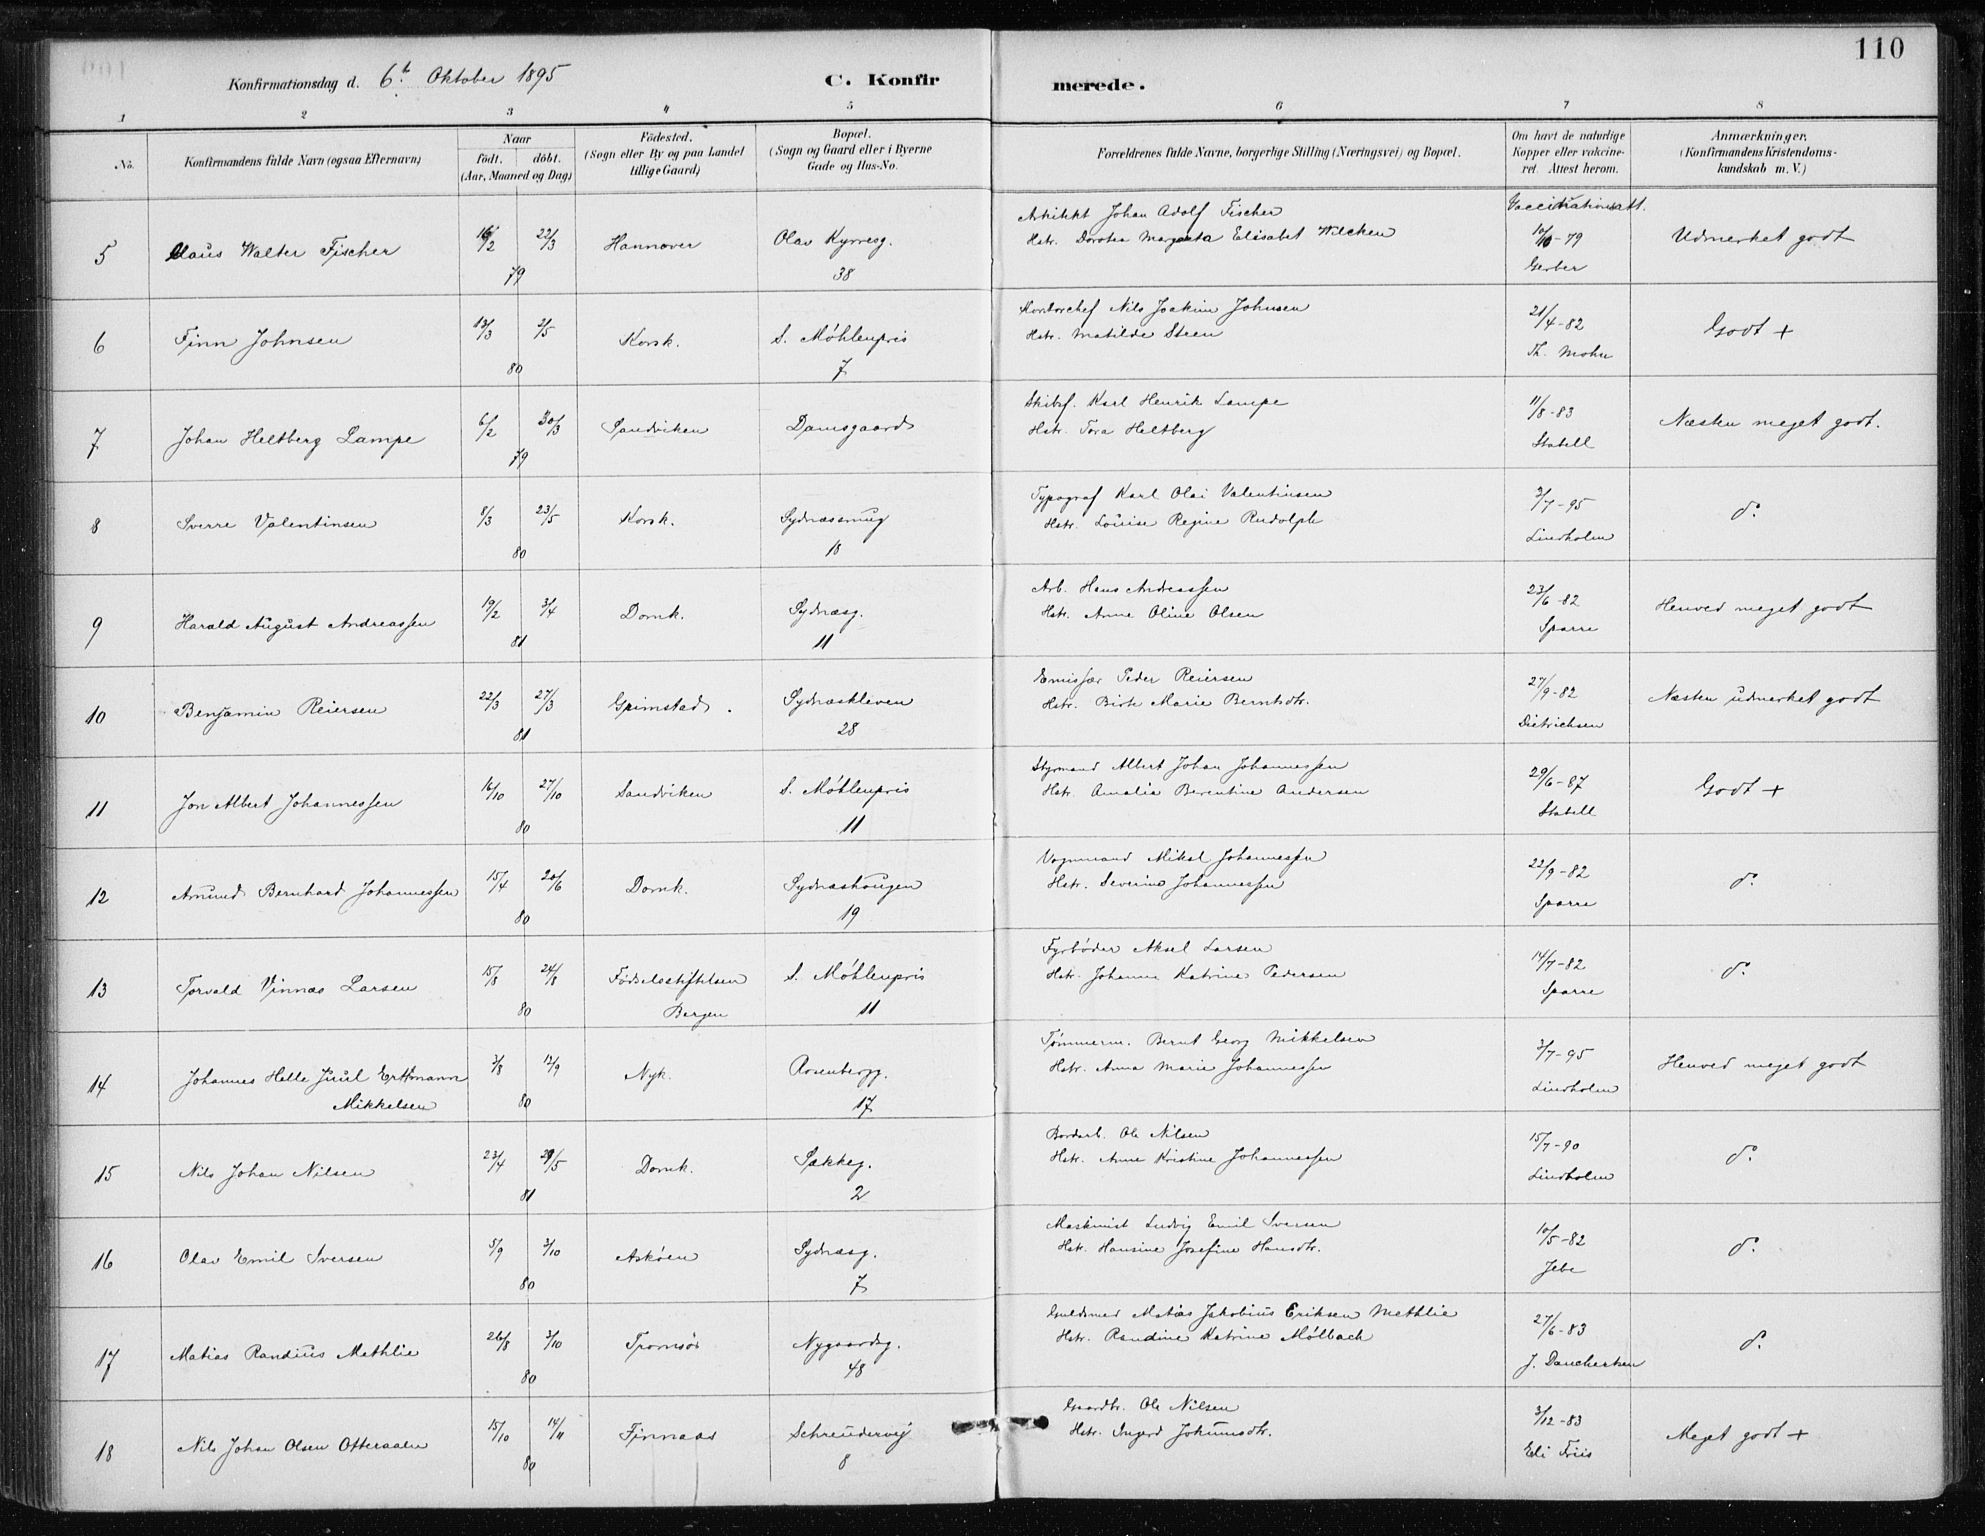 110
Konfirmationsdag d. 6t Oktober 1895
C. Konfirmerede.
1 2 3 4 5 6 7 8
No.
Konfirmandens fulde Navn (ogsaa Efternavn)
Naar
födt. döbt.
(Aar, Maaned og Dag)
Födested.
(Sogn eller By og paa Landet
tillige Gaard)
Bopæl.
(Sogn og Gaard eller i Byerne
Gade og Hus-No.
Forældrenes fulde Navne, borgerlige Stilling (Næringsvei) og Bopæl.
Om havt de naturlige
Kopper eller vakcine-
ret. Attest herom.
Anmærkninger.
(Konfirmandens Kristendoms-
kundskab m. V.)
5 Claus Walter Fischer 16/2 22/3 79 Hannover Olav Kyrresg. 38
Arkitekt Johan Adolf Fischer
Hstr. Dorotea Margareta Elisabet Wilcken
Vaccinationsatt.
10/10-79
Gerber
Udmerket godt
6 Finn Johnsen 13/3 2/5 80 Korsk. S. Møhlenpris 7
Kontorchef Nils Joakim Johnsen
Hstr. Matilde Steen
21/4-82
Th. Mohn
Godt +
7 Johan Heltberg Lampe 6/2 30/3 79 Sandviken Damsgaard
Skibsf. Karl Henrik Lampe
Hstr. Tora Heltberg
11/8-83
Stabell
Næsten meget godt.
8 Sverre Valentinsen 8/3 23/5 80 Korsk. Sydnæssmug 18
Typograf Karl Olai Valentinsen
Hstr. Louise Regine Rudolph
3/7-95
Lindholm
d.
9 Harald August Andreassen 19/2 3/4 81 Domk. Sydnæsg. 11
Arb. Hans Andreassen
Hstr. Anne Oline Olsen
23/6-82
Sparre
Henved meget godt
10 Benjamin Reiersen 22/3 27/3 81 Grimstad. Sydnæskleven 28
Emissær Peder Reiersen
Hstr. Birte Marie Berntsdtr.
27/9-82
Dietrichsen
Næsten udmerket godt
11 Jon Albert Johannessen 16/10 27/10 80 Sandviken S. Møhlenpris 11
Styrmand Albert Johan Johannessen
Hstr. Amalia Berentine Andersen
29/6-87
Stabell
Godt +
12 Amund Bernhard Johannessen 15/4 20/6 80 Domk. Sydnæshougen 19
Vognmand Mikal Johannessen
Hstr. Severine Johannessen
22/9-82
Sparre
d.
13 Torvald Vinnæs Larsen 15/8 24/8 80 Födselsstiftelsen Bergen S. Møhlenpris 11
Fyrbøder Aksel Larsen
Hstr. Johanne Katrine Pedersen
14/7-82
Sparre
d.
14 Johannes Helle Juul Erttmann Mikkelsen 3/8 12/9 80 Nyk. Rosenbergg. 17
Tømmerm. Bernt Georg Mikkelsen
Hstr. Anna Marie Johannessen
3/7-95
Lindholm
Henved meget godt
15 Nils Johan Nilsen 23/4 29/5 81 Domk. Sækkeg. 2
Bordarb. Ole Nilsen
Hstr. Anne Kristine Johannessen
15/7-90
Lindholm
d.
16 Olav Emil Iversen 5/9 3/10 80 Askøen Sydnæsg. 7
Maskinist Ludvig Emil Iversen
Hstr. Hansine Josefine Hansdtr.
10/5-82
Jebe
d.
17 Matias Randius Methlie 26/8 3/10 80 Tromsø Nygaardsg. 48
Guldsmed Matias Jakobius Eriksen Methlie
Hstr. Randine Katrine Mølbach
27/6-83
J. Danchertsen
d.
18 Nils Johan Olsen Otteraalen 15/10 14/11 80 Finnaas Schreudervej 8
Gaardbr. Ole Nilsen
Hstr. Ingerd Johannesdtr.
3/12-83
Eli Friis
Meget godt +